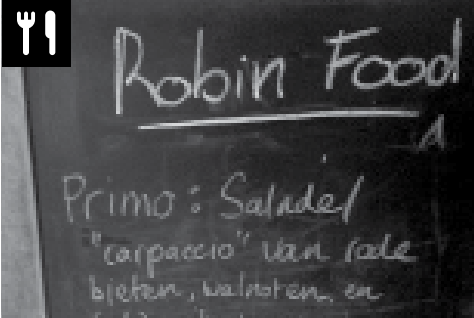 Robin Food
Primo: Salade/
"carpaccio" van rode
bieten, walnoten, en